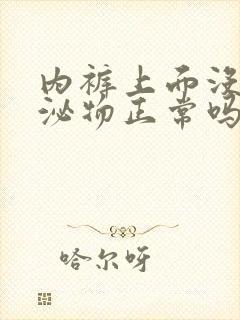 内裤上而没
泌物正常吗
哈尔呀